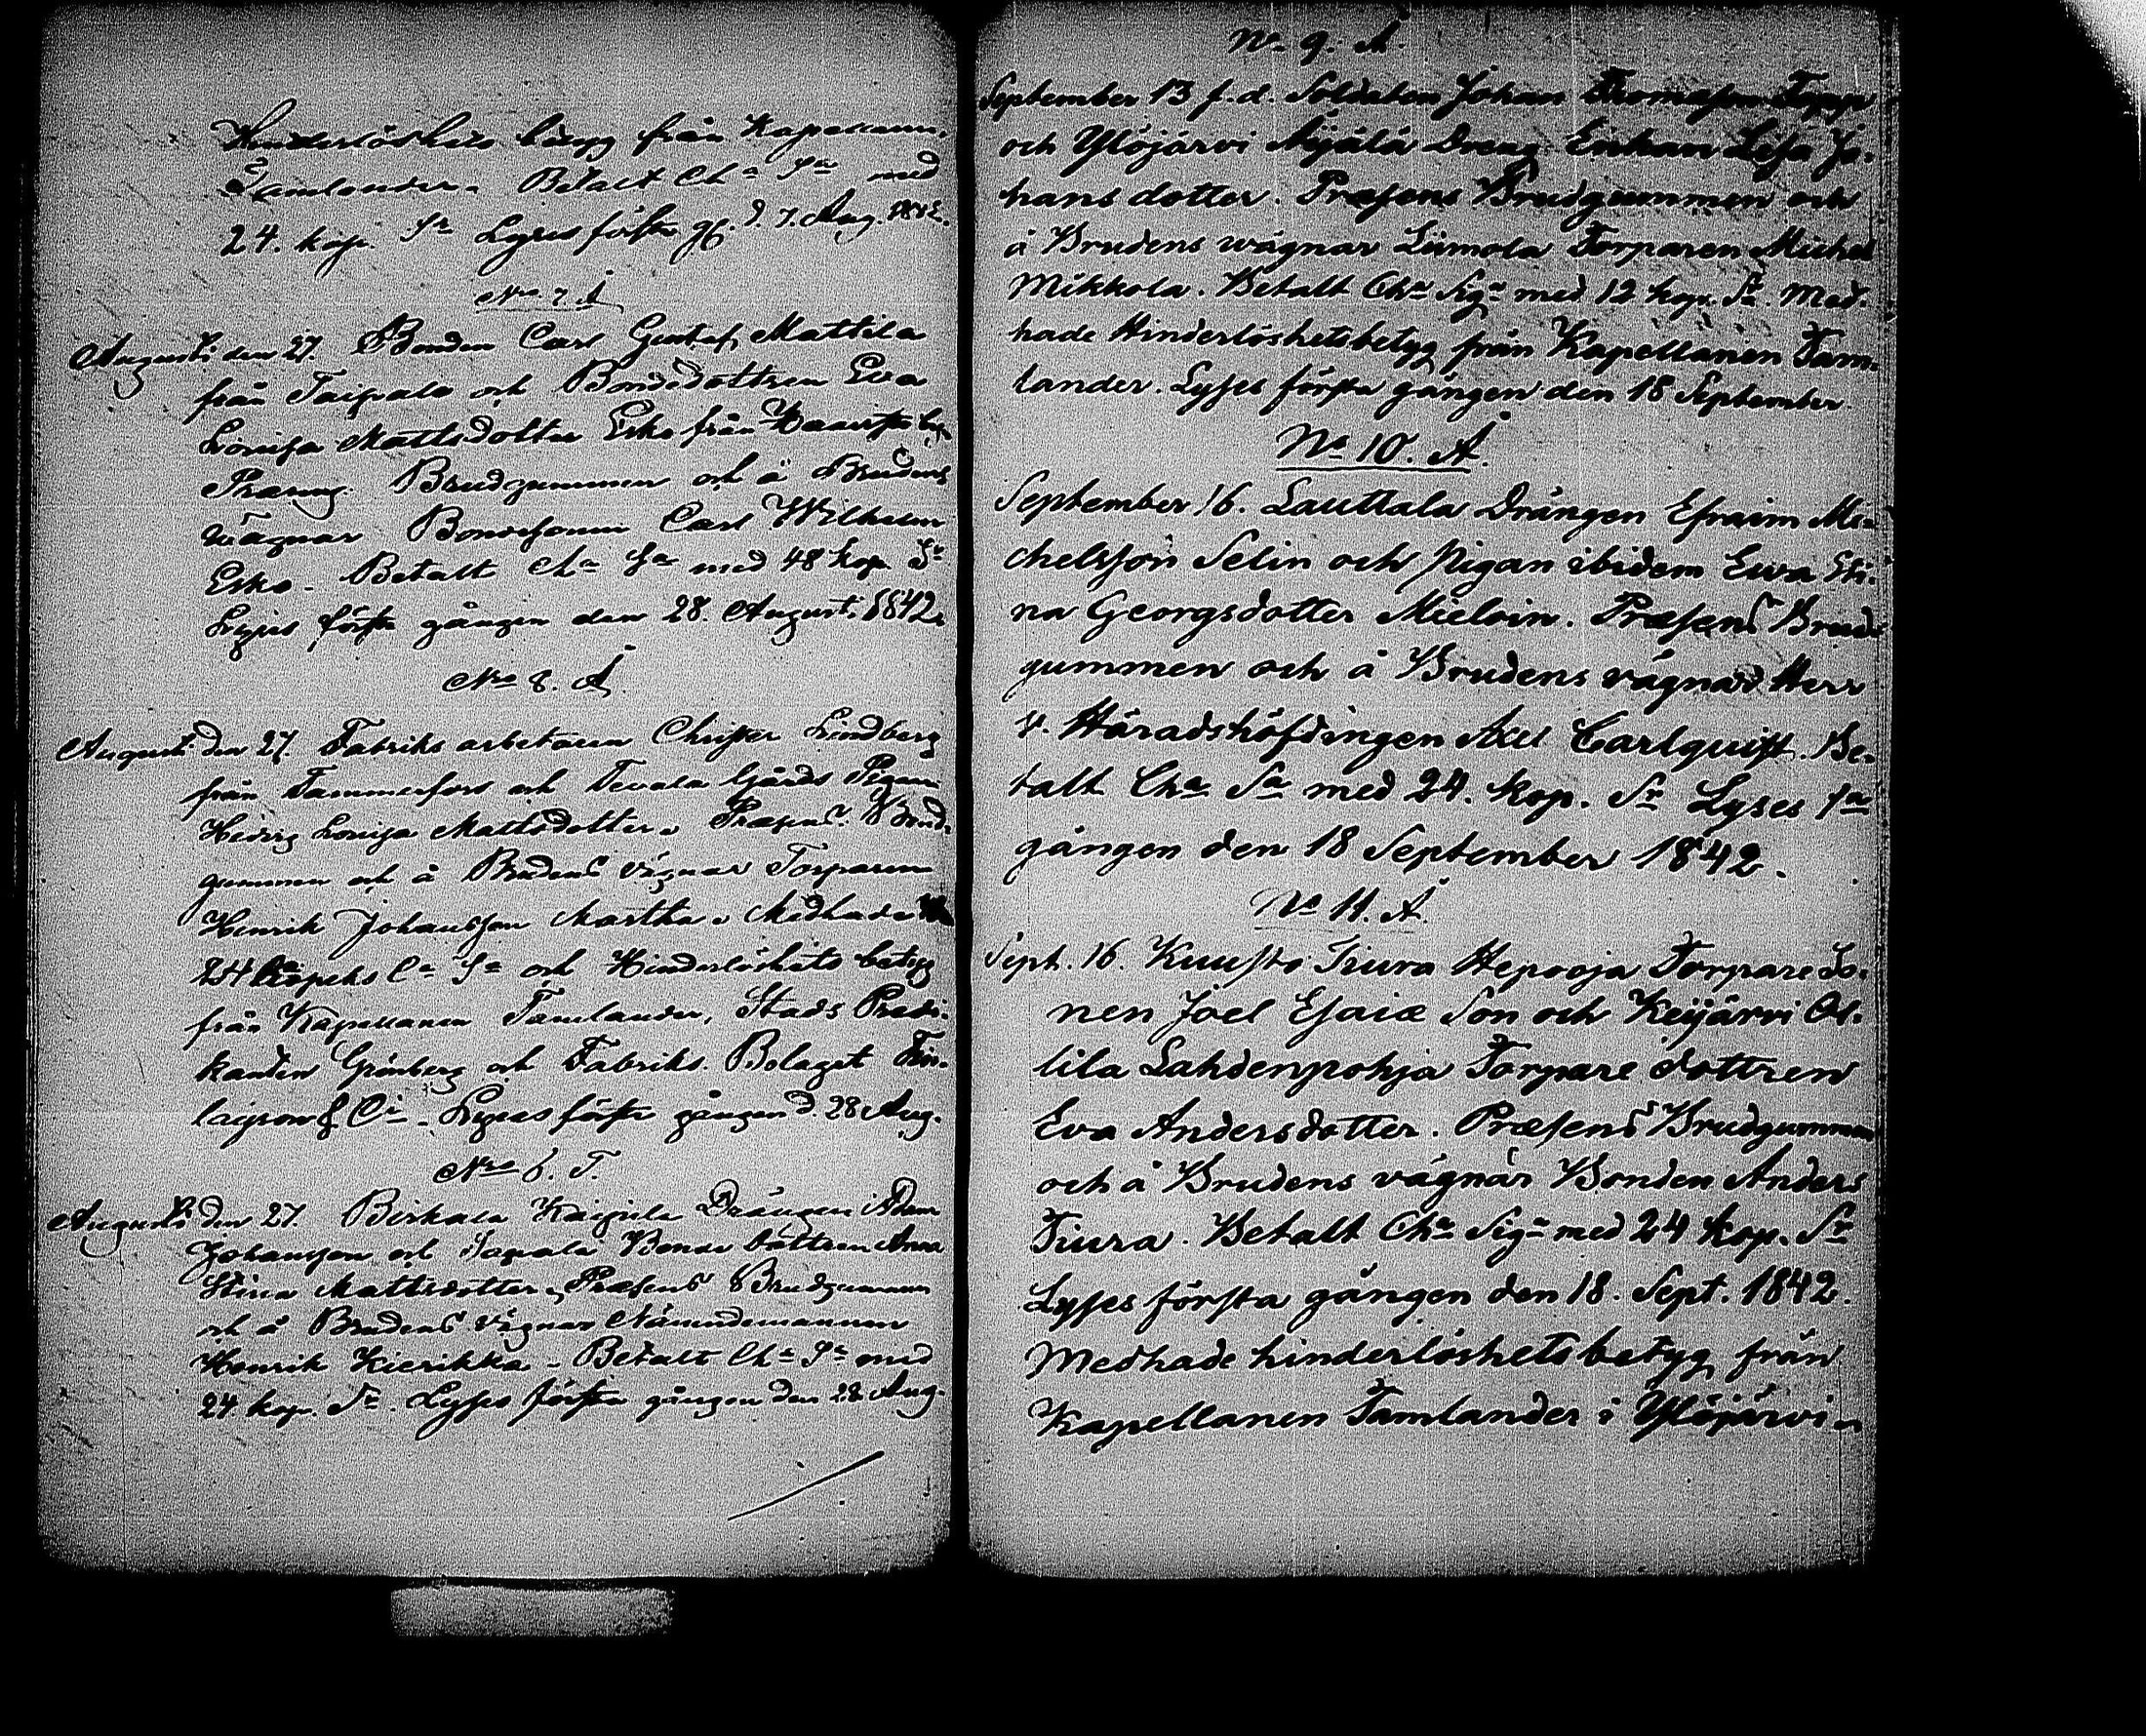 Hinderlöshets betyg från Kapellanen
Tamlander. Betalt Cha Sa med
24. kop. Sr Lyses första gg. d. 7. Aug. 1842.
No 7. Å
Augusti den 27. Bonden Carl Gustaf Mattila
från Taipale och Bondedottren Eva
Lovisa Mattsdotter Esko från
Præseng. Brudgummen och å Brudens
vägnar Bondesonen Carl Wilhelm
Esko - Betalt Cha Sa med 48 kop. Sr
Lyses första gången den 28. Augusti 1842.
No 8. Å
Augusti den 27. Fabriks arbetaren Christer Lindberg
från Tammerfors och Tevala Gårds Pigan
Hedvig Lovisa Mattsdotter. Præsens Brud-
gummen och å Brudens vägnar Torparen
Henrik Johansson Marttila. Medhade
24 Kopeks Ca Sa och Hinderlöshets betyg
från Kapellanen Tamlander, Stads Predi-
kanten Grönberg och Fabriks. Bolaget Fin-
layson & Ci - Lyses första gången d. 28 Aug.
No 6. T.
Augusti den 27. Birkala Kaipila Drängen Adam
Johansson och Taipale Bonde dottren Anna
Stina Mattsdotter. Præsens Brudgummen
och å Brudens vägnar Nämndemannen
Henrik Kierikka - Betalt Cha Sa med
24. kop. Sr. Lyses första gången den 28 Aug.
No 9. Å
September 13 f.d. Soldaten Johan Thomasson Topp
och Ylöjärvi Mijälä Dreng Enkan Lisa Jo-
hans dotter. Præsens Brudgummen och
å Brudens wägnar Lamola Torparen Michel
Mikkola. Betalt Cha Siga med 12 kop. Sr. Med-
hade Hinderlöshetsbetyg från Kapellanen Tam-
lander. Lyses första gången den 18 September.
No 10. Å.
September 16. Lauttala Drängen Efraim Mi-
chelsson Selin och Pigan ibidem Ewa Sti-
na Georgsdotter Mieloin. Præsens Brud-
gummen och å Brudens vägnar Herr
v. Häradshöfdingen Axel Carlquist. Be-
talt Cha Sa med 24. kop. Sr Lyses 1a
gången den 18 September 1842.
No 11. Å.
Sept. 16. Kuusto Tiura Hepooja Torpare So-
nen Joel Esaiæ Son och Keijärvi Ol-
lila Lahdenpohja Torpare dottren
Eva Andersdotter. Præsens Brudgummen
och å Brudens vägnar Bonden Anders
Tiura. Betalt Cha Siga med 24 kop. Sr
Lyses första gången den 18. Sept. 1842.
Medhade hinderlöshets betyg från
Kapellanen Tamlander i Ylöjärvi